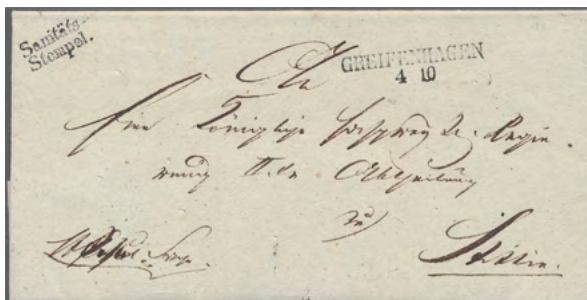 Sanitäts-
Stempel.
GREIFENHAGEN
4 10
An
Eine Königliche Regie-
rung II. te Abtheilung
zu
Stettin.